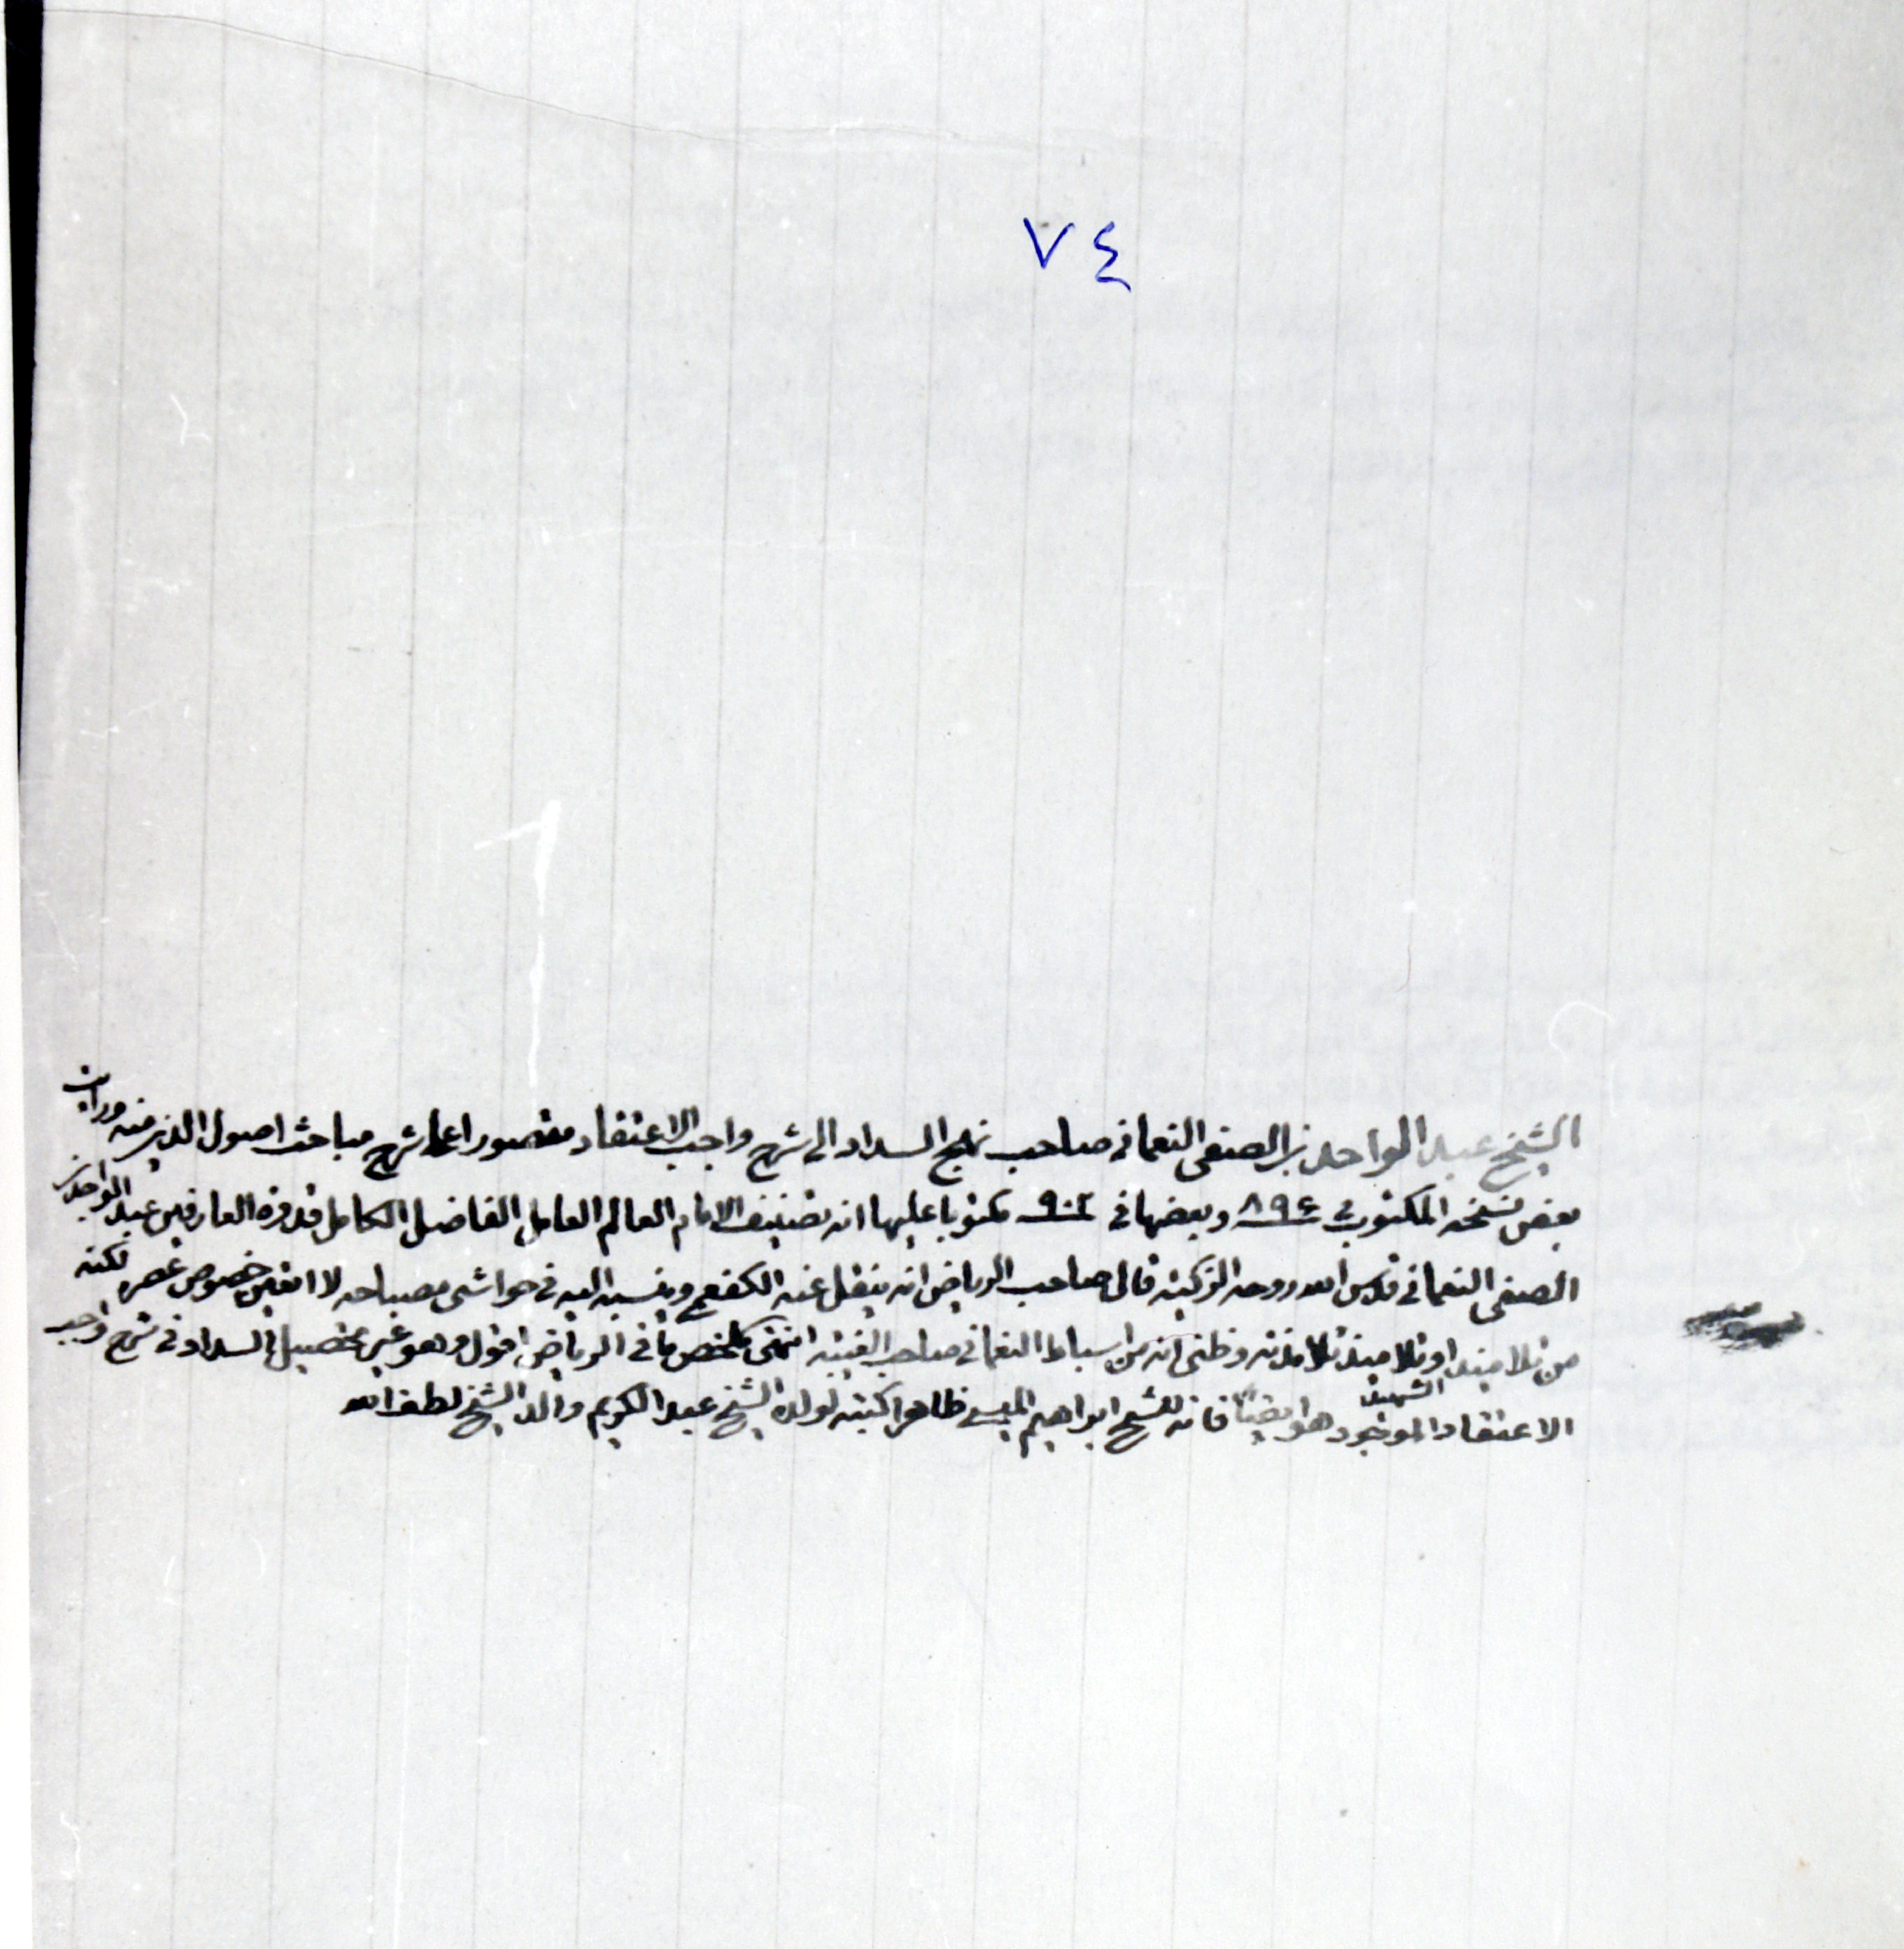 ٧٤
الشيخ عبد الواحد بن الصفى النعمانى صاحب نهج السداد الى شرح واجب الاعتقاد مقصورا على شرح مباحث اصول الدين منه ورايت
بعض نسخه المكتوب فى ٨٩٤ وبعضها فى ٩٠٢ مكتوبا عليها انه تصنيف الامام العالم العامل الفاضل الكامل قدوة العارفين عبد الواحد بن
الصفى النعمانى قدس الله روحه الزكية قال صاحب الرياض انه ينقل عنه الكفعمى وينسبه اليه فى حواشى مصباحه لا اتعين خصوص عصره لكنه
من تلاميذ الشهيد او تلاميذ تلامذته وظنى انه من اسباط النعمانى صاحب الغيبة انتهى ملخص ما فى الرياض اقول وهو غير تحصيل السداد فى شرح واجب
الاعتقاد الموجود هو ايضا فانه للشيخ ابراهيم الميسى ظاهرا كتبه لولده الشيخ عبد الكريم والد الشيخ لطف الله